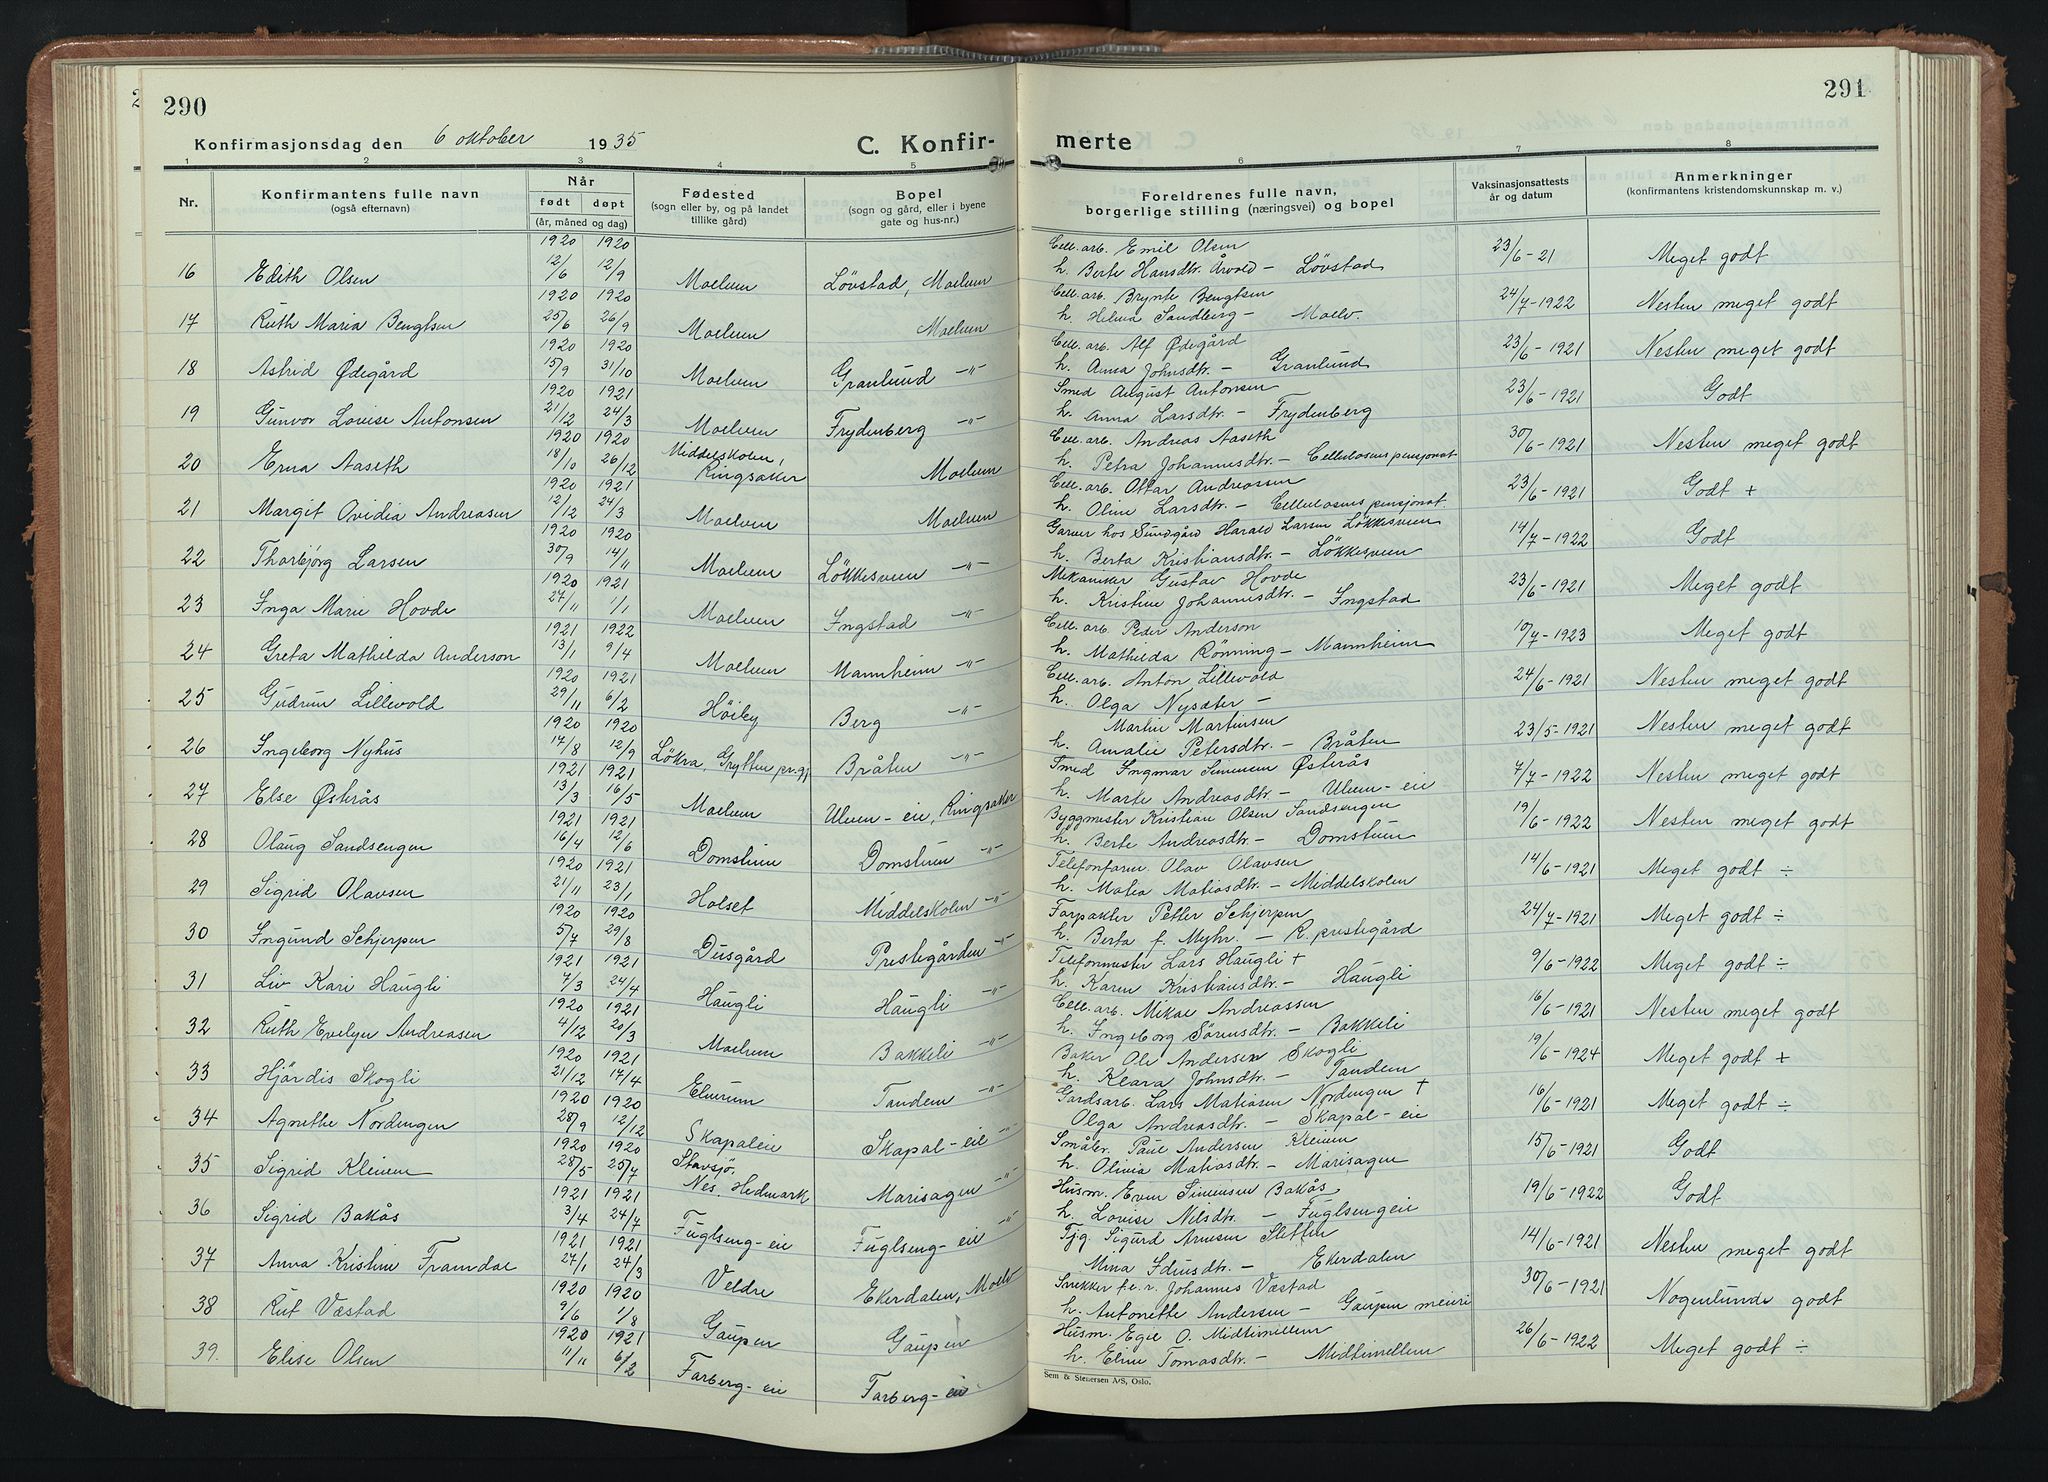 290
Konfirmasjonsdag den 6 oktober 1935
C. Konfir-
1 2 3 4 5
Nr.
Konfirmantens fulle navn
(også efternavn)
Når
født døpt
(år, måned og dag)
Fødested
(sogn eller by, og på landet
tillike gård)
Bopel
(sogn og gård, eller i byene
gate og hus-nr.)
1920 1920
16 Edith Olsen 12/6 12/9 Moelven Løvstad, Moelven
1920 1920
17 Ruth Maria Bengtsen 25/6 26/9 Moelven Moelven
1920 1920
18 Astrid Ødegård 15/9 31/10 Moelven Granlund -"-
1920 1921
19 Gunvor Louise Antonsen 21/12 24/3 Moelven Frydenberg -"-
1920 1920 Middelskolen,
20 Erna Aaseth 18/10 26/12 Ringsaker Moelven
1920 1921
21 Margit Ovidia Andreasen 12/12 24/3 Moelven Moelven
1920 1920
22 Thorbjørg Larsen 30/9 14/11 Moelven Løkkesveen -"-
1920 1921
23 Inga Marie Hovde 27/11 1/1 Moelven Ingstad -"-
1921 1922
24 Greta Mathilda Anderson 13/1 9/4 Moelven Mannheim -"-
1920 1921
25 Gudrun Lillevold 29/11 6/2 Høiby Berg -"-
1920 1920
26 Ingeborg Nyhus 17/8 12/9 Løkra, Grytten pr.gj. Bråten -"-
1921 1921
27 Else Østerås 13/3 16/5 Moelven Ulven-eie, Ringsaker
1921 1921
28 Olaug Sandsengen 16/4 12/6 Domstuen Domstuen -"-
1920 1921
29 Sigrid Olavsen 21/11 23/1 Holset Middelskolen -"-
1920 1920
30 Ingund Schjerpen 5/7 29/8 Dusgård Prestegården -"-
1921 1921
31 Liv Kari Haugli 7/3 24/4 Haugli Haugli -"-
1920 1921
32 Ruth Evelyn Andreasen 4/12 20/3 Moelven Bakkeli -"-
1920 1921
33 Hjördis Skogli 21/12 17/4 Elverum Tandem -"-
1920 1920
34 Agnethe Nordengen 28/9 12/12 Skapaleie Skapal-eie -"-
1920 1920 Stavsjø,
35 Sigrid Kleiven 28/5 25/7 Nes. Hedmark Marisagen -"-
1921 1921
36 Sigrid Bakås 3/4 24/7 Fuglseng-eie Fuglseng-eie -"-
1921 1921
37 Anna Kristine Framdal 27/1 24/3 Veldre Ekerdalen, Moelv
1920 1920
38 Rut Væstad 9/6 1/8 Gaupen Gaupen
1920 1921
39. Else Olsen 11/11 6/2 Farberg-eie Farberg-eie
291
merte
6 7 8
Foreldrenes fulle navn,
borgerlige stilling (næringsvei) og bopel
Vaksinasjonsattests
år og datum
Anmerkninger
(konfirmantens kristendomskunnskap m. v.)
Cell. arb. Emil Olsen
h. Berte Hansdtr. Årvold - Løvstad 23/6-21 Meget godt
Cell. arb. Brynte Bengtsen
h. Helma Sandberg - Moelv. 24/7-1922 Nesten meget godt
Cell. arb. Alf Ødegård
h. Anna Johnsdtr. - Granlund 23/6-1921 Nesten meget godt
Smed August Antonsen
h. Anna Larsdtr. - Frydenberg 23/6-1921 Godt
Cell. arb. Andreas Aaseth
h. Petra Johannesdtr. - Cellulosens pensjonat 30/6-1921 Nesten meget godt
Cell. arb. Ottar Andreassen
h. Oline Larsdtr. - Cellulosens pensjonat. 23/6-1921 Godt +
Garver hos Sundgård Harald Larsen Løkkesveen
h. Berta Kristiansdtr. - Løkkesveen 14/7-1922 Godt
Mekaniker Gustav Hovde
h. Kristine Johannesdtr. - Ingstad 23/6-1921 Meget godt
Cell. arb. Peder Anderson
h. Mathilda Rønning - Mannheim 10/7-1923 Meget godt
Cell. arb. Anton Lillevold
h. Olga Nysæter - 24/6-1921 Nesten meget godt
Martin Martinsen
h. Amalie Petersdtr. - Bråten 23/5-1921 Nesten meget godt
Smed Ingmar Simensen Østerås
h. Marte Andreasdtr. - Ulven-eie 7/7-1922 Nesten meget godt
Byggmester Kristian Olsen Sandsengen
h. Berte Andreasdtr. - Domstuen 19/6-1922 Nesten meget godt
Telefonform Olav Olavsen
h. Matea Matiasdtr. - Middelskolen 14/6-1921 Meget godt ÷
Forpakter Petter Schjerpen
h. Berta f. Myhr. - R. prestegård 24/7-1921 Meget godt ÷
Telefonmester Lars Haugli +
h. Karen Kristiansdtr. - Haugli 9/6-1922 Meget godt ÷
Cell. arb. Mikal Andreassen
h. Ingeborg Sørensdtr. - Bakkeli 16/6-1921 Nesten meget godt
Baker Ole Andersen Skogli
h. Klara Johnsdtr. - Tandem 19/6-1924 Meget godt +
Gardsarb. Lars Matiasen Nordengen +
Olga Andreasdtr. - Skapal-eie 16/6-1921 Meget godt ÷
Småbr. Paul Andersen Kleiven
h. Olivia Matiasdtr. - Marisagen 15/6-1921 Godt
Husm. Even Simensen Bakås
h. Lovise Nilsdtr. - Fuglsengeie 19/6-1922 Godt
Tjg. Sigurd Arnesen Sletten
Mina Idensdtr. - Ekerdalen 14/6-1921 Nesten meget godt
Snekker f.e.r. Johannes Væstad
h. Antonette Andersen - Gaupen meieri 30/6-1921 Nogenlunde godt
Husm. Egil O. Midtimellem
h. Eline Tomasdtr. - Midtimellem 26/6-1922 Meget godt ÷
Sem & Stenersen A/S, Oslo.